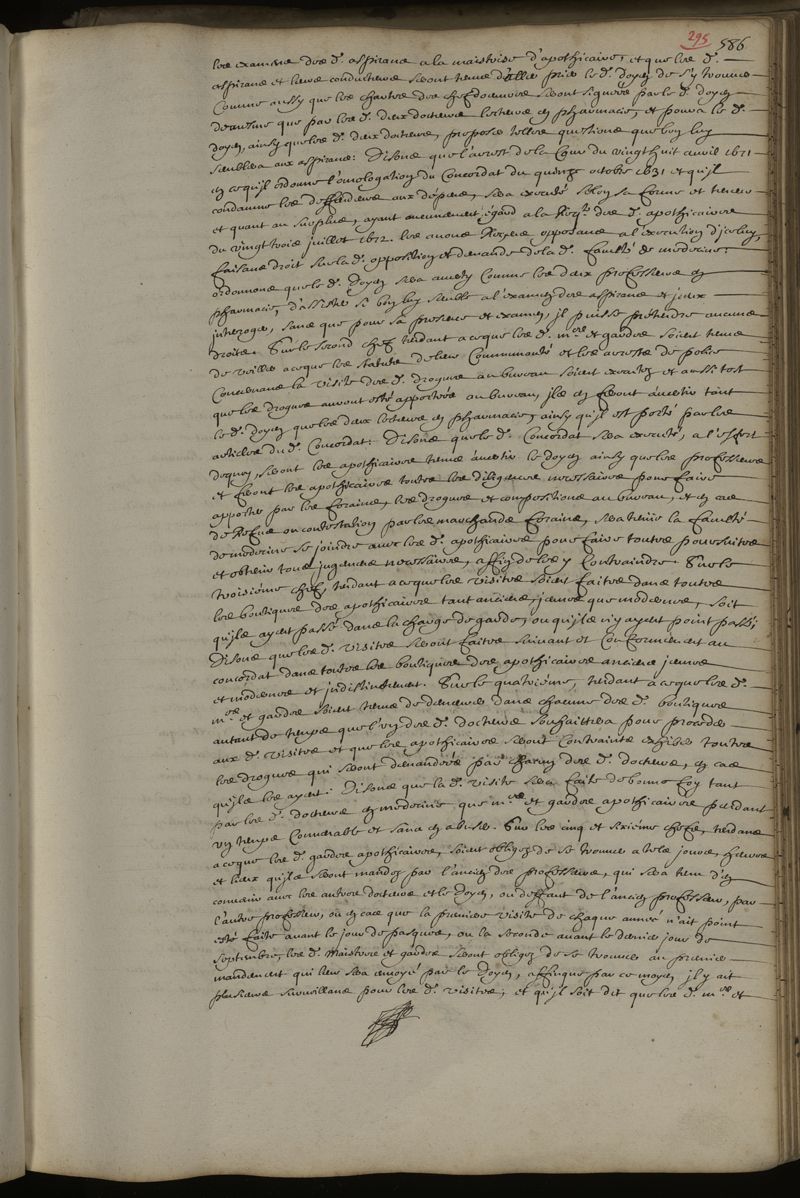 295 586
les examens des d. aspirans a la maistrise d'apothicaire, et que les d.
aspirans et leurs conducteurs seront tenus d'aller prier le d. doyen de s'y trouver
Comme aussy que les chartres des chefdoeuvres seront signées par le d. doyen
de mesme que par les d. deux docteurs lecteurs en pharmacie, et poura le d.
doyen, ainsy que les d. deux docteurs, proposer telles questions que bon luy
semblera aux aspirans: Disons que l'arrest de la Cour du vingt huit avril 1671
en ce qu'il ordonne l'omologation du Concordat du quinze octobre 1631 et qu'il
condamne les deffendeurs aux dépens, sera executé selon sa forme et teneur
et quant au surplus, ayant aucunement égard a la Req.te des d. apothicaires
du vingt trois juillet 1672. les avons Receus opposans a l'execution d'iceluy,
faisans droit sur la d. opposition et demande de la d. faculté de medecine;
ordonnons que le d. Doyen sera averty Comme les deux professeurs en
pharmacie, d'assister si bon luy semble a l'examen des aspirans et iceux
interroger, sans que pour sa presence et examen, il puisse pretendre aucuns
droits. Sur le second chef tendant a ce que les d. m.res et gardes soient tenus
de veiller a ce que les statuts de leur Communauté et les arrests de police
Concernans la visite des d. drogues au bureau soient executez et aussi tost
que les drogues auront esté apportées au bureau, ils en feront avertir tant
le d. doyen que les deux lecteurs en pharmacie, ainsy qu'il est porté par les
articles du d. Concordat: Disons que le d. Concordat sera executé, a l'effect
dequoy, seront les apothicaires tenus avertir le doyen ainsy que les professeurs
et feront les apothicaires toutes les diligences necessaires pour faire
apporter par les forains, les drogues et compositions au bureau, et en cas
de Refus ou contestation par les marchands forains, sera tenüe la faculté
de medecine se joindre avec les d. apothicaires pour faire toutes poursuites
et obtenir tous jugemens necessaires, affin de les y Contraindre. Sur le
troisiéme chef, tendant a ce que les visites soient faites dans toutes
les boutiques des apothicaires tant anciens, jeunes que modernes, soit
qu'ils ayent passé dans la charge de gardes, ou qu'ils n'y ayent point passé;
Disons que les d. visites seront faites suivant et Conformement au
concordat dans toutes les boutiques des apothicaires anciens jeunes
et modernes et indistinctement. Sur le quatriéme, tendant a ce que les d.
m.res et gardes soient tenus de demeurer dans chacune des d. boutiques
autant de temps que l'un des d. docteurs souhaittera pour proceder
aux d. visites et que les apothicaires seront Contraints exhiber toutes
les drogues qui seront demandées par chacun des d. docteurs, en cas
qu'ils les ayent: Disons que la d. visite sera faite de bonne foy tant
par les d. docteurs en medecine que m.res et gardes apothicaires pendant
un temps Convenable et sans en abuser. Sur les cinq et sixiéme chefs, tendans
a ce que les d. gardes apothicaires, soient obligez de se trouver a tels jours, heures
et lieux qu'ils seront mandez par l'ancien des professeurs, qui sera tenu d'en
convenir avec les autres docteurs et le Doyen, ou deffaut de l'ancien professeur, par
l'autre professeur, ou en cas que la premiere visite de chaque année n'ait point
esté faite avant le jour de pasques, ou la seconde avant le dernier jour de
septembre, les d. Maistres et gardes seront obligez de se trouver au premier
mandement qui leur sera envoyé par le Doyen, affin que par ce moyen il y ait
plusieurs surveillans pour les d. visites; et qu'il soit dit que les d. m.res et